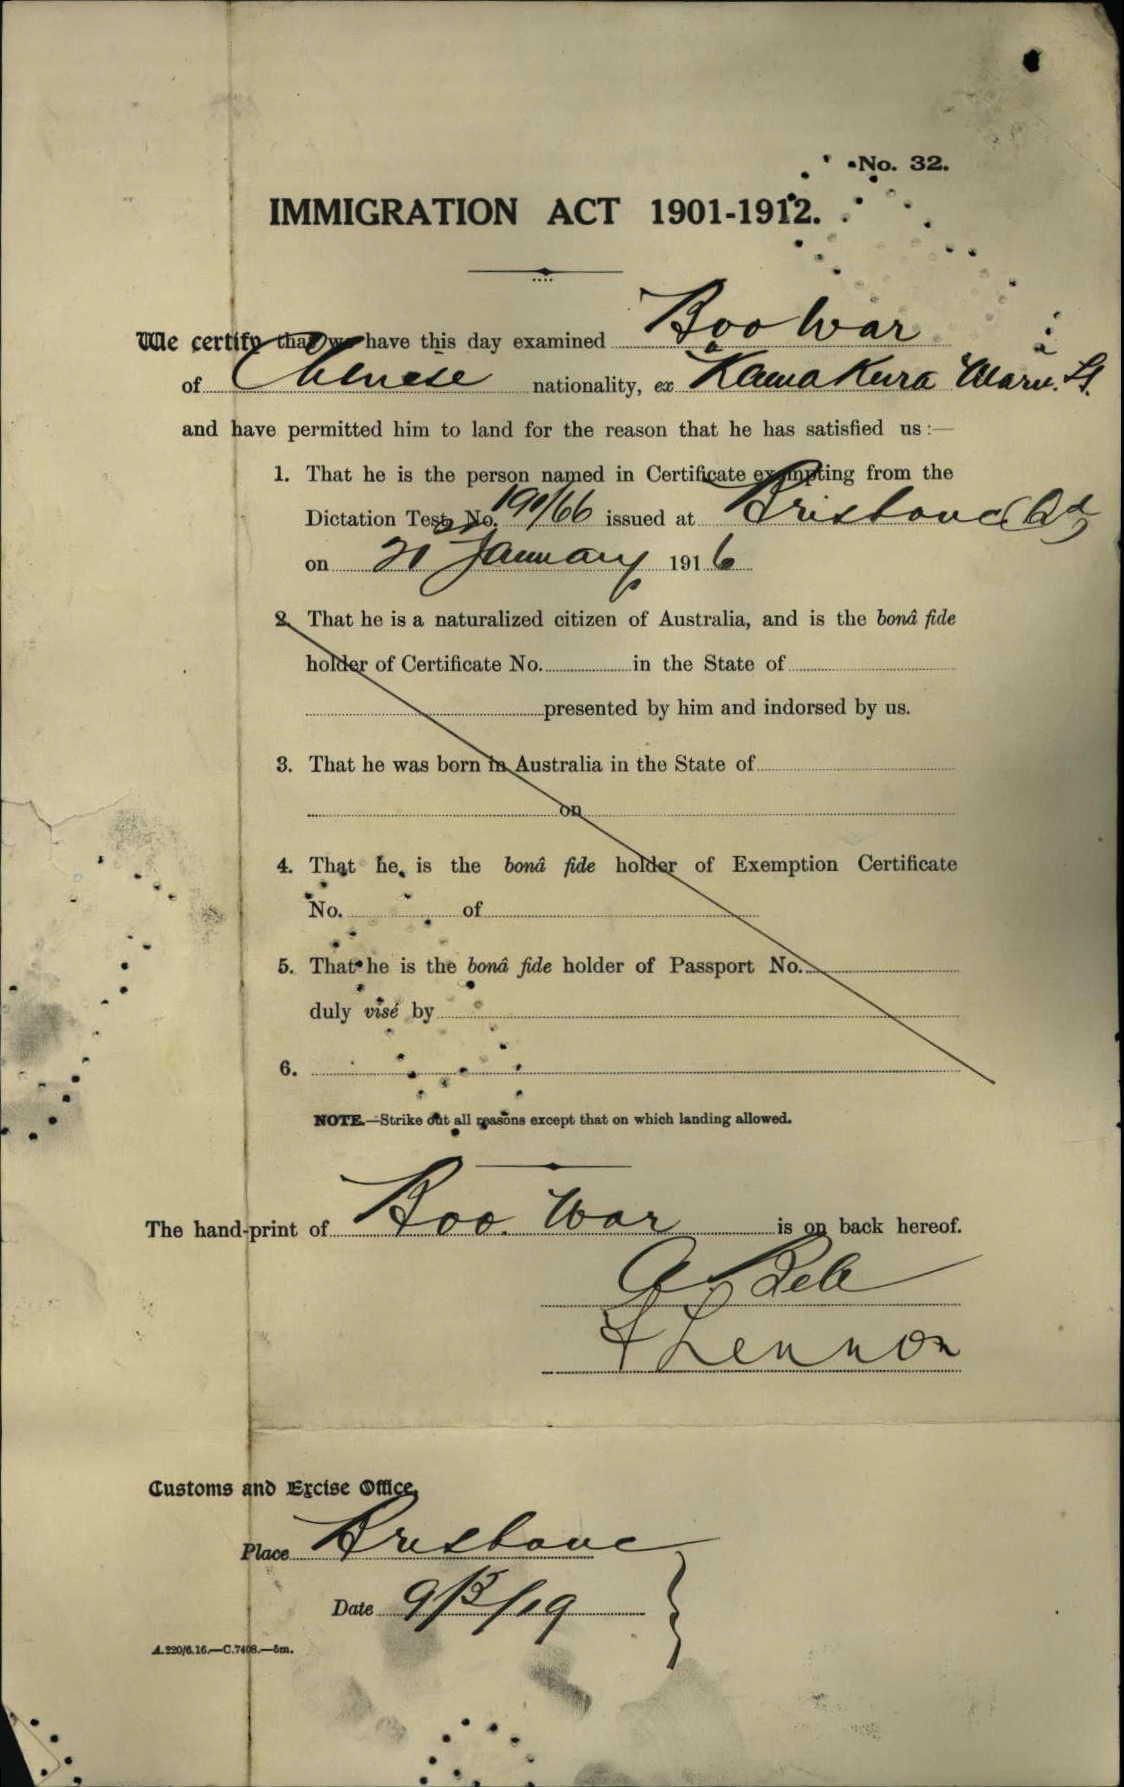 No. 32.
IMMIGRATION ACT 1901-1912.
We certify that we have this day examined Boo War
of Chinese nationality, ex Kamakura Maru.
and have permitted him to land for the reason that he has satisfied us:—
1. That he is the person named in Certificate exempting from the
Dictation Test, No. 190/66 issued at Brisbane
on 21 January 1916
2. That he is a naturalized citizen of Australia, and is the bonâ fide
holder of Certificate No. in the State of
presented by him and indorsed by us.
3. That he was born in Australia in the State of
on
4. That he is the bonâ fide holder of Exemption Certificate
No. of
5. That he is the bonâ fide holder of Passport No.
duly visé by
6.
NOTE.—Strike out all reasons except that on which landing allowed.
The hand-print of Boo War is on back hereof.
Lennon
Customs and Excise Office,
Place Brisbane
Date 9/5/19
A.220/6.16.—C.7408.—5m.